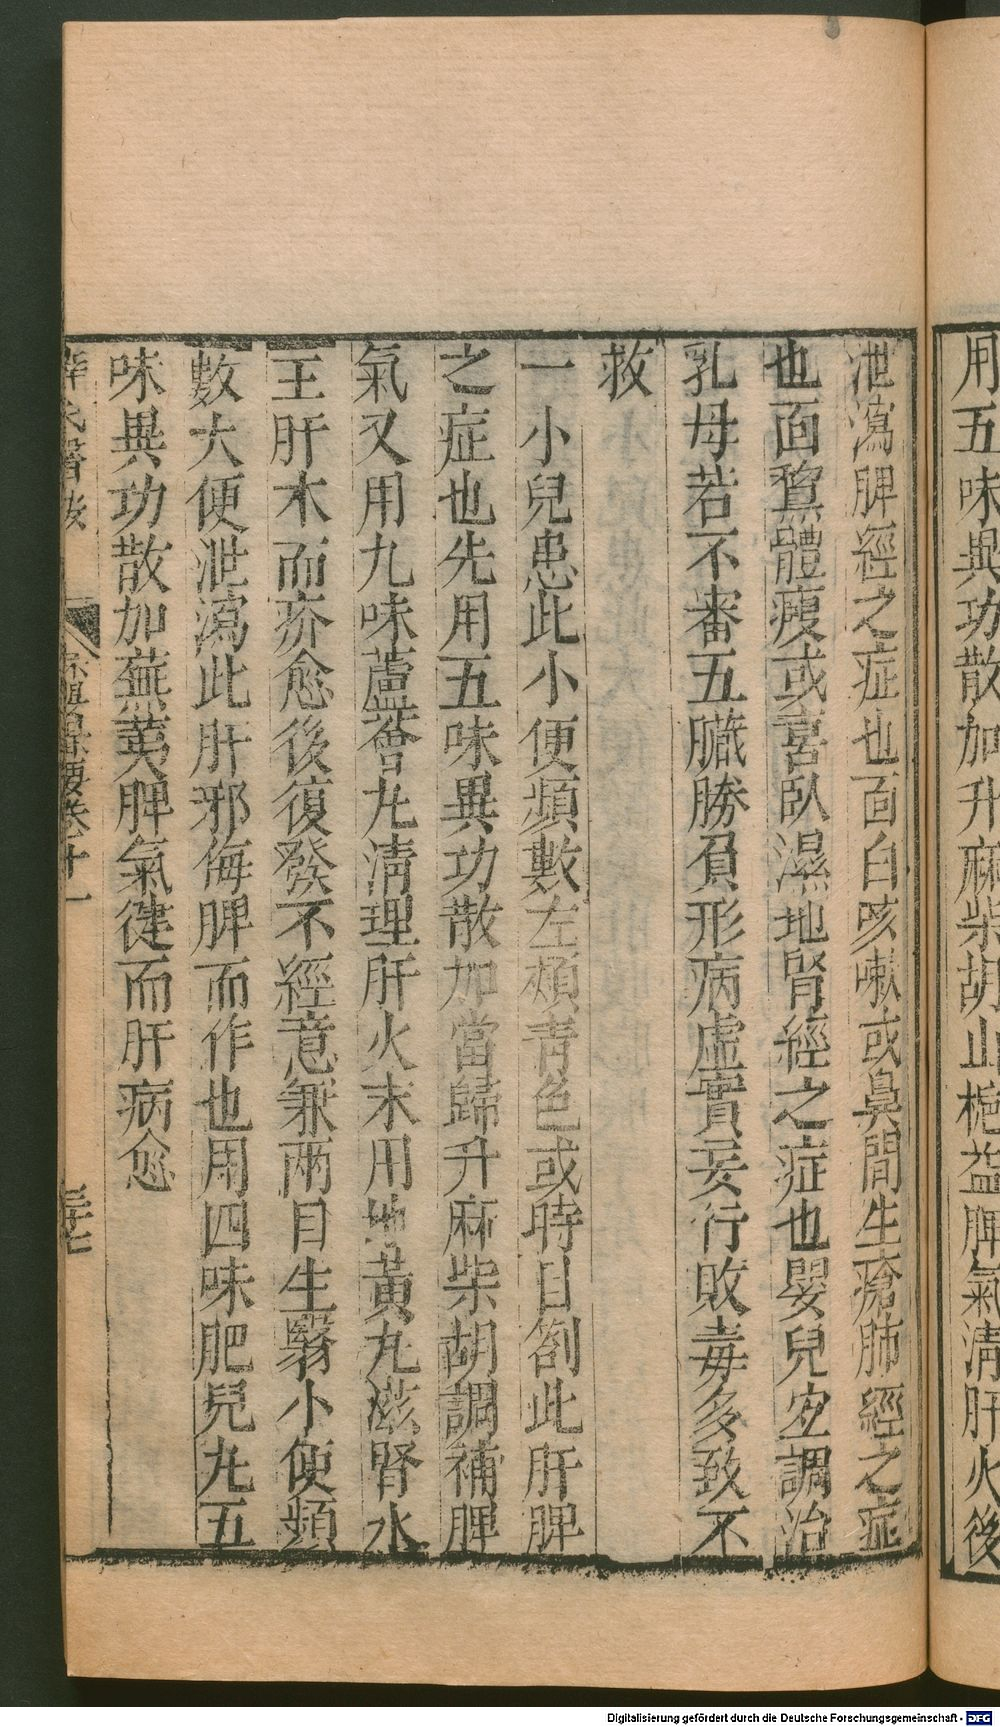 用五味異功散加升麻柴胡山梔益脾氣清肝火後
泄瀉脾經之症也面白咳嗽或鼻間生瘡肺經之症
也面黧體瘦或喜臥濕地腎經之症也嬰兒宜調治
乳母若不審五臟勝負形病虛實妄行敗毒多致不
救
一小兒患此小便頻數左頰青色或時目劄此肝脾
之症也先用五味異功散加當歸升麻柴胡調補脾
氣又用九味蘆薈丸清理肝火末用地黃丸滋腎水
生肝木而疥愈後復發不經意兼兩目生翳小便頻
數大便泄瀉此肝邪侮脾而作也用四味肥兒丸五
味異功散加蕪荑脾氣健而肝病愈
薛氏醫按
保嬰撮要卷十一
三十七
Digitalisierung gefördert durch die Deutsche Forschungsgemeinschaft - DFG